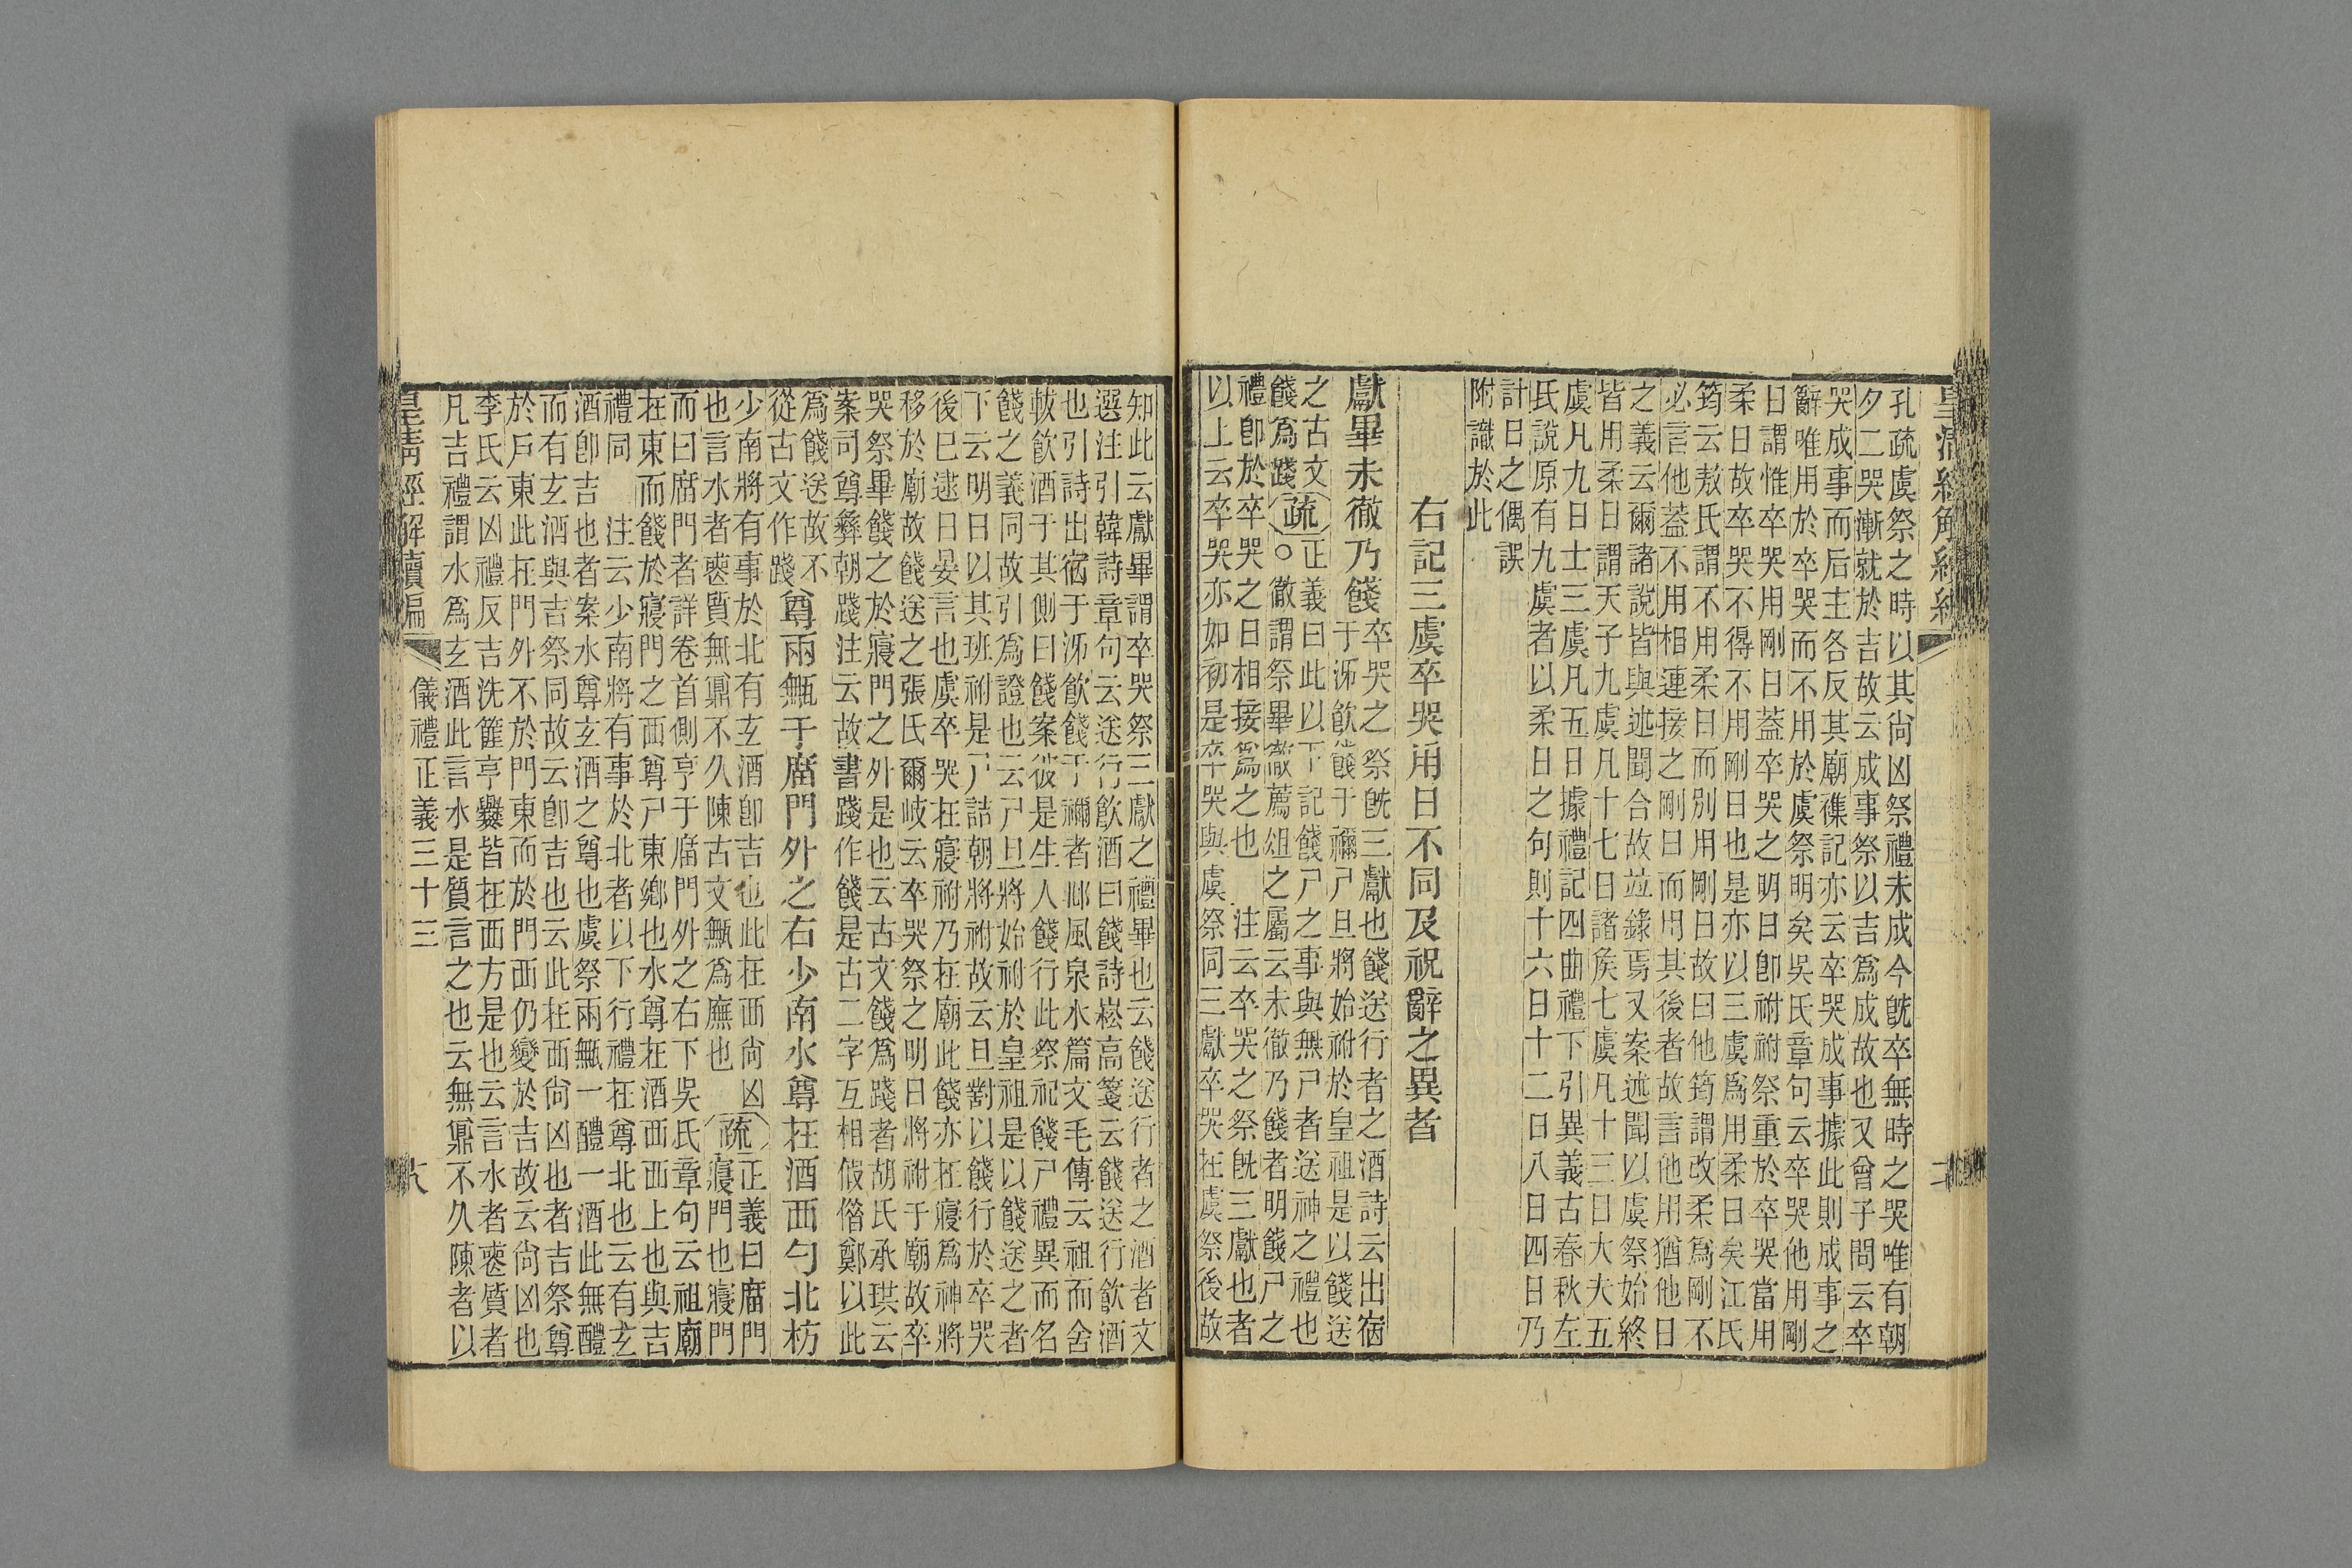 孔疏虞祭之時以其尙凶祭禮未成今旣卒無時之哭唯有朝
夕二哭漸就於吉故云成事祭以吉爲成故也又曾子問云卒
哭成事而后主各反其廟襍記亦云卒哭成事據此則成事之
辭唯用於卒哭而不用於虞祭明矣吳氏章句云卒哭他用剛
日謂惟卒哭用剛日葢卒哭之明日卽祔祔祭重於卒哭當用
柔日故卒哭不得不用剛日也是亦以三虞爲用柔日矣江氏
筠云敖氏謂不用柔日而別用剛日故曰他筠謂改柔爲剛不
必言他葢不用相連接之剛日而用其後者故言他用猶他日
之義云爾諸說皆與述聞合故竝錄焉又案述聞以虞祭始終
皆用柔日謂天子九虞凡十七日諸矦七虞凡十三日大夫五
虞凡九日士三虞凡五日據禮記四曲禮下引異義古春秋左
氏說原有九虞者以柔日之句則十六日十二日八日四日乃
計日之偶誤
附識於此
右記三虞卒哭用日不同及祝辭之異者
獻畢未徹乃餞
卒哭之祭旣三獻也餞送行者之酒詩云出宿
于泲飮餞于禰尸旦將始祔於皇祖是以餞送
之古文
餞爲踐
疏
正義曰此以下記餞尸之事與無尸者送神之禮也
○徹謂祭畢徹薦俎之屬云未徹乃餞者明餞尸之
禮卽於卒哭之日相接爲之也　注云卒哭之祭旣三獻也者
以上云卒哭亦如初是卒哭與虞祭同三獻卒哭在虞祭後故
知此云獻畢謂卒哭祭三獻之禮畢也云餞送行者之酒者文
選注引韓詩章句云送行飮酒曰餞詩崧高箋云餞送行飮酒
也引詩出宿于泲飮餞于禰者邶風泉水篇文毛傳云祖而舍
軷飮酒于其側曰餞案彼是生人餞行此祭祀餞尸禮異而名
餞之義同故引爲證也云尸旦將始祔於皇祖是以餞送之者
下云明日以其班祔是尸詰朝將祔故云旦對以餞行於卒哭
後巳逮日晏言也虞卒哭在寢祔乃在廟此餞亦在寢爲神將
移於廟故餞送之張氏爾岐云卒哭祭之明日將祔于廟故卒
哭祭畢餞之於寢門之外是也云古文餞爲踐者胡氏承珙云
案司尊彝朝踐注云故書踐作餞是古二字互相假借鄭以此
爲餞送故不
從古文作踐
尊兩甒于廟門外之右少南水尊在酒西勺北枋
少南將有事於北有玄酒卽吉也此在西尙凶
也言水者喪質無鼏不久陳古文甒爲廡也
疏
正義曰廟門
寢門也寢門
而曰廟門者詳卷首側亨于廟門外之右下吳氏章句云祖廟
在東而餞於寢門之西尊尸東鄉也水尊在酒西西上也與吉
禮同　注云少南將有事於北者以下行禮在尊北也云有玄
酒卽吉也者案水尊玄酒之尊也虞祭兩甒一醴一酒此無醴
而有玄酒與吉祭同故云卽吉也云此在西尙凶也者吉祭尊
於戶東此在門外不於門東而於門西仍變於吉故云尙凶也
李氏云凶禮反吉洗篚亨爨皆在西方是也云言水者喪質者
凡吉禮謂水爲玄酒此言水是質言之也云無鼏不久陳者以
皇淸經解續編
儀禮正義三十三